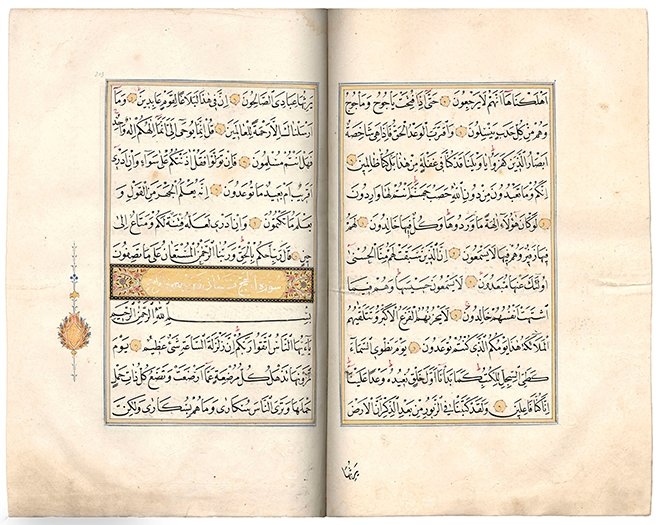 اَهْلَكْنَاهَا اَنَّهُمْ لَا يَرْجِعُونَ حَتّٰى اِذَا فُتِحَتْ يَاْجُوجُ وَمَاْجُوجُ
وَهُمْ مِنْ كُلِّ حَدَبٍ يَنْسِلُونَ وَاقْتَرَبَ الْوَعْدُ الْحَقُّ فَاِذَا هِيَ شَاخِصَةٌ
اَبْصَارُ الَّذِينَ كَفَرُوا يَا وَيْلَنَا قَدْ كُنَّا فِي غَفْلَةٍ مِنْ هٰذَا بَلْ كُنَّا ظَالِمِينَ
اِنَّكُمْ وَمَا تَعْبُدُونَ مِنْ دُونِ اللّٰهِ حَصَبُ جَهَنَّمَ اَنْتُمْ لَهَا وَارِدُونَ
لَوْ كَانَ هٰؤُلَاءِ اٰلِهَةً مَا وَرَدُوهَا وَكُلٌّ فِيهَا خَالِدُونَ لَهُمْ
فِيهَا زَفِيرٌ وَهُمْ فِيهَا لَا يَسْمَعُونَ اِنَّ الَّذِينَ سَبَقَتْ لَهُمْ مِنَّا الْحُسْنٰى
اُولٰئِكَ عَنْهَا مُبْعَدُونَ لَا يَسْمَعُونَ حَسِيسَهَا وَهُمْ فِيمَا
اشْتَهَتْ اَنْفُسُهُمْ خَالِدُونَ لَا يَحْزُنُهُمُ الْفَزَعُ الْاَكْبَرُ وَتَتَلَقّٰيهُمُ
الْمَلَائِكَةُ هٰذَا يَوْمُكُمُ الَّذِي كُنْتُمْ تُوعَدُونَ يَوْمَ نَطْوِي السَّمَاءَ
كَطَيِّ السِّجِلِّ لِلْكُتُبِ كَمَا بَدَاْنَا اَوَّلَ خَلْقٍ نُعِيدُهُ وَعْدًا عَلَيْنَا
اِنَّا كُنَّا فَاعِلِينَ وَلَقَدْ كَتَبْنَا فِي الزَّبُورِ مِنْ بَعْدِ الذِّكْرِ اَنَّ الْاَرْضَ
يَرِثُهَا
يَرِثُهَا عِبَادِيَ الصَّالِحُونَ اِنَّ فِي هٰذَا لَبَلَاغًا لِقَوْمٍ عَابِدِينَ وَمَا
اَرْسَلْنَاكَ اِلَّا رَحْمَةً لِلْعَالَمِينَ قُلْ اِنَّمَا يُوحٰى اِلَيَّ اَنَّمَا اِلٰهُكُمْ اِلٰهٌ وَاحِدٌ
فَهَلْ اَنْتُمْ مُسْلِمُونَ فَاِنْ تَوَلَّوْا فَقُلْ اٰذَنْتُكُمْ عَلٰى سَوَاءٍ وَاِنْ اَدْرِي
اَقَرِيبٌ اَمْ بَعِيدٌ مَا تُوعَدُونَ اِنَّهُ يَعْلَمُ الْجَهْرَ مِنَ الْقَوْلِ وَ
يَعْلَمُ مَا تَكْتُمُونَ وَاِنْ اَدْرِي لَعَلَّهُ فِتْنَةٌ لَكُمْ وَمَتَاعٌ اِلٰى
حِينٍ قَالَ رَبِّ احْكُمْ بِالْحَقِّ وَرَبُّنَا الرَّحْمٰنُ الْمُسْتَعَانُ عَلٰى مَا تَصِفُونَ
سورة الحج
بِسْمِ اللّٰهِ الرَّحْمٰنِ الرَّحِيمِ
يَا اَيُّهَا النَّاسُ اتَّقُوا رَبَّكُمْ اِنَّ زَلْزَلَةَ السَّاعَةِ شَيْءٌ عَظِيمٌ يَوْمَ
تَرَوْنَهَا تَذْهَلُ كُلُّ مُرْضِعَةٍ عَمَّا اَرْضَعَتْ وَتَضَعُ كُلُّ ذَاتِ حَمْلٍ
حَمْلَهَا وَتَرَى النَّاسَ سُكَارٰى وَمَا هُمْ بِسُكَارٰى وَلٰكِنَّ